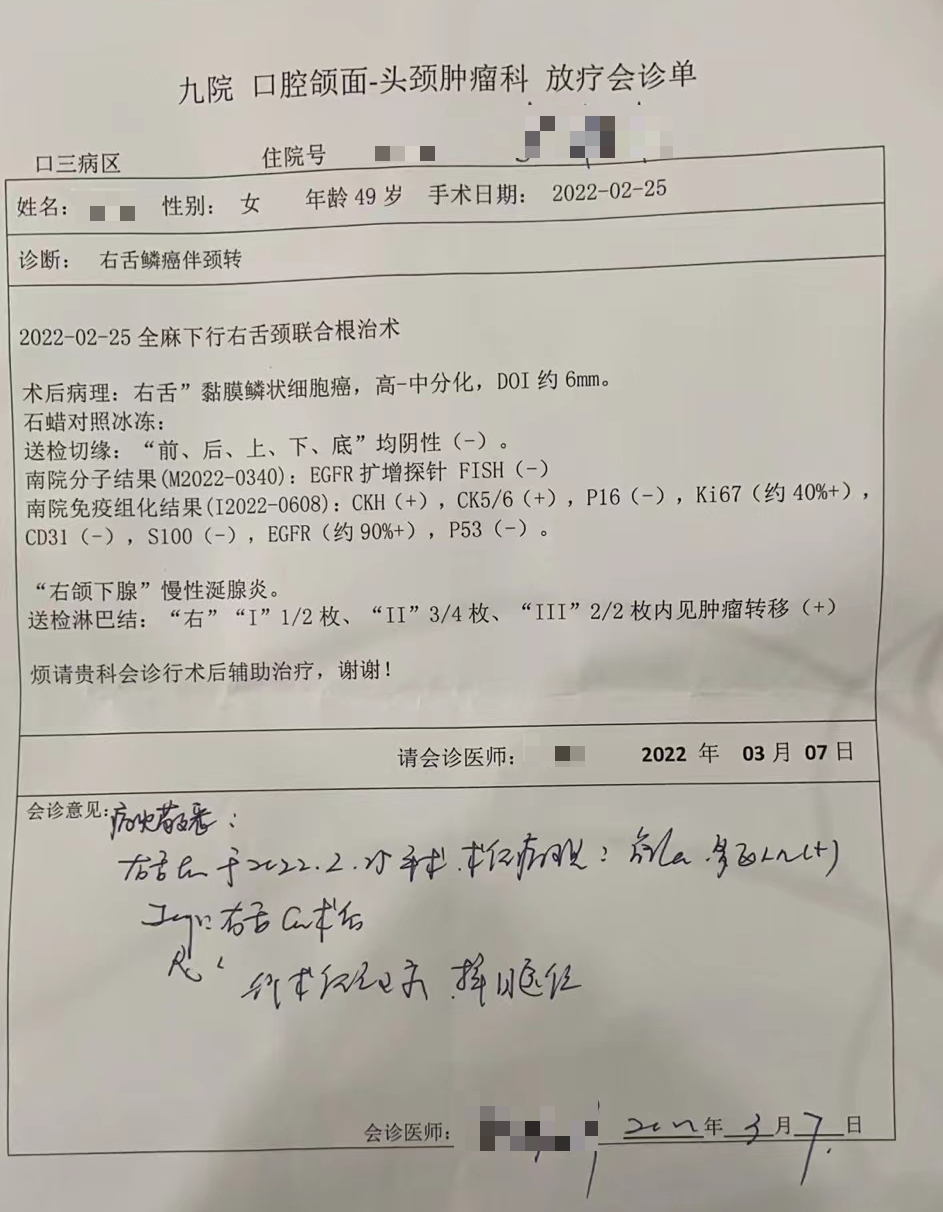 九院 口腔颌面-头颈肿瘤科 放疗会诊单
口三病区 住院号
姓名： 性别： 女 年龄 49 岁 手术日期： 2022-02-25
诊断： 右舌鳞癌伴颈转
2022-02-25 全麻下行右舌颈联合根治术
术后病理：右舌”黏膜鳞状细胞癌，高-中分化，DOI 约 6mm。
石蜡对照冰冻：
送检切缘：“前、后、上、下、底”均阴性（-）。
南院分子结果(M2022-0340)：EGFR 扩增探针 FISH（-）
南院免疫组化结果(I2022-0608)：CKH（+），CK5/6（+），P16（-），Ki67（约 40%+），
CD31（-），S100（-），EGFR（约 90%+），P53（-）。
“右颌下腺”慢性涎腺炎。
送检淋巴结：“右”“I”1/2 枚、“II”3/4 枚、“III”2/2 枚内见肿瘤转移（+）
烦请贵科会诊行术后辅助治疗，谢谢！
请会诊医师： 2022 年 03 月 07 日
会诊意见：病史敬悉：
右舌Ca于2022.2.25手术.术后病理见：LN(+)
右舌Ca术后
会诊医师： 2022年3月7日